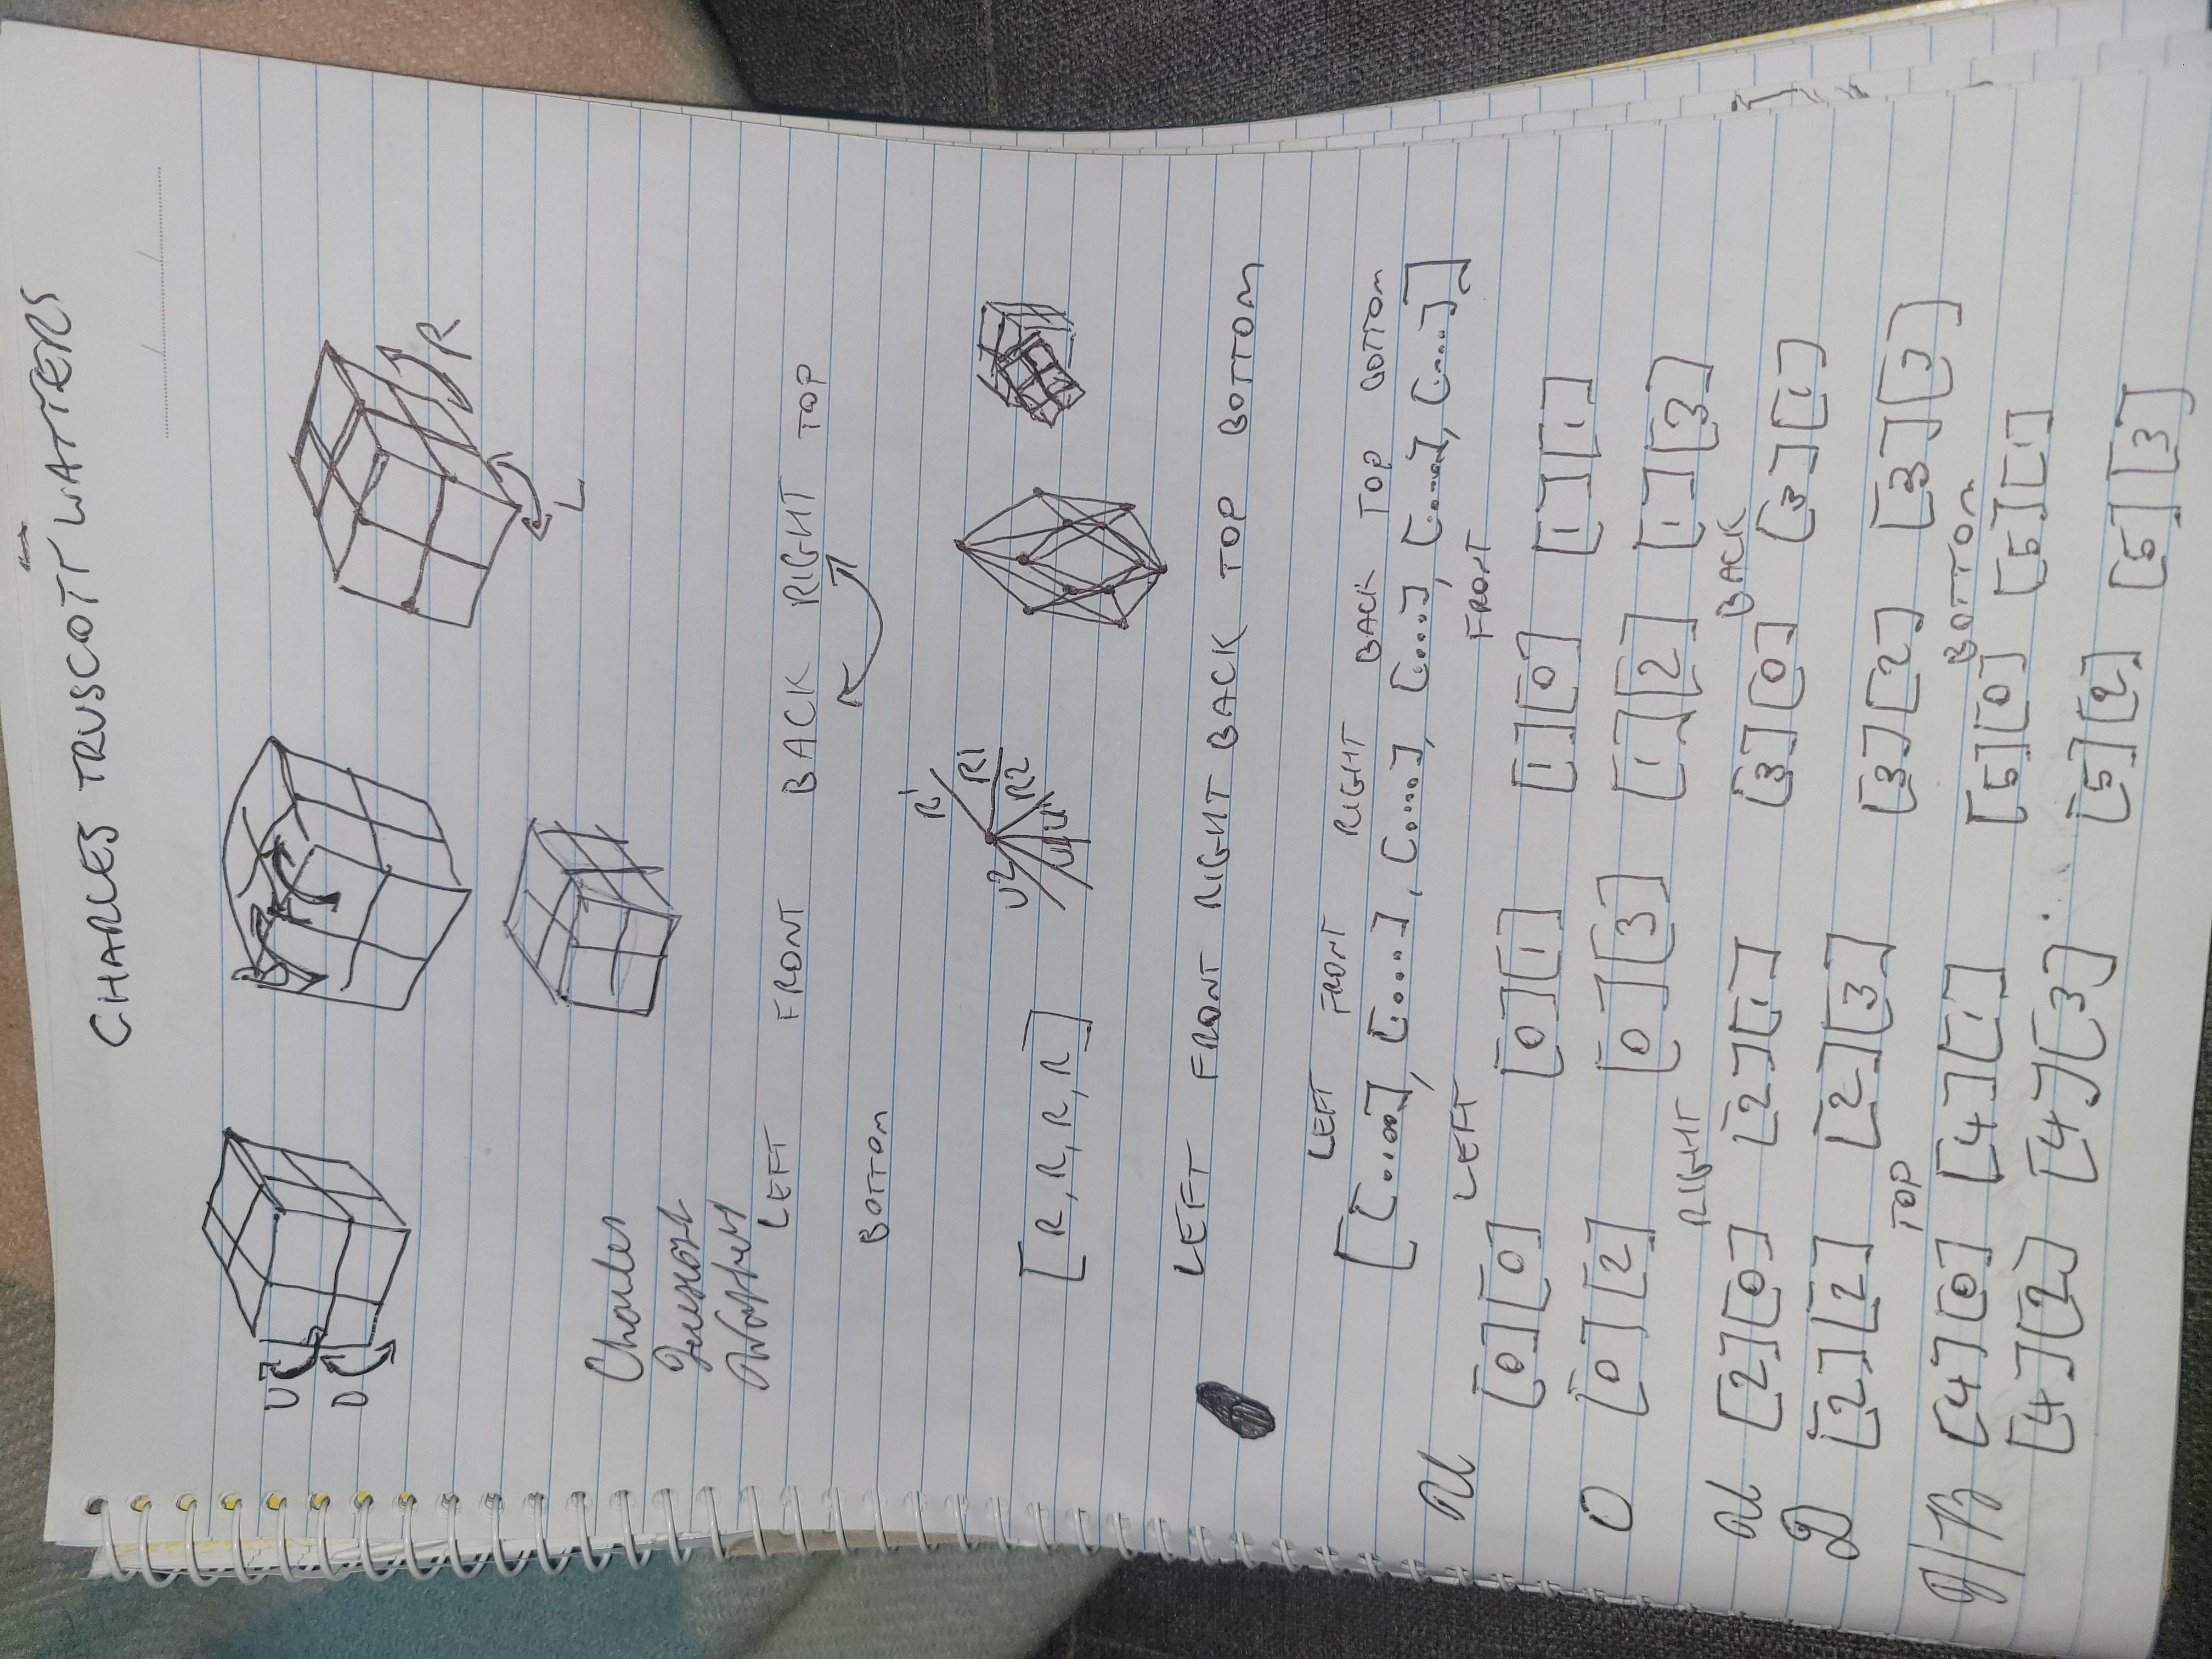 CHARLES TRUSCOTT WATTERS
U
D
R
L
Charles
Truscott
Watters
LEFT FRONT BACK RIGHT TOP
BOTTOM
R'
R1
U2 R2
[R, R, R, R] U U'
LEFT FRONT RIGHT BACK TOP BOTTOM
LEFT FRONT RIGHT BACK TOP BOTTOM
[[....], [....], [....], [....], [....], [....]]
U LEFT FRONT
[0][0] [0][1] [1][0] [1][1]
D [0][2] [0][3] [1][2] [1][3]
RIGHT BACK
U [2][0] [2][1] [3][0] [3][1]
D [2][2] [2][3] [3][2] [3][3]
TOP BOTTOM
[4][0] [4][1] [5][0] [5][1]
[4][2] [4][3] [5][2] [5][3]